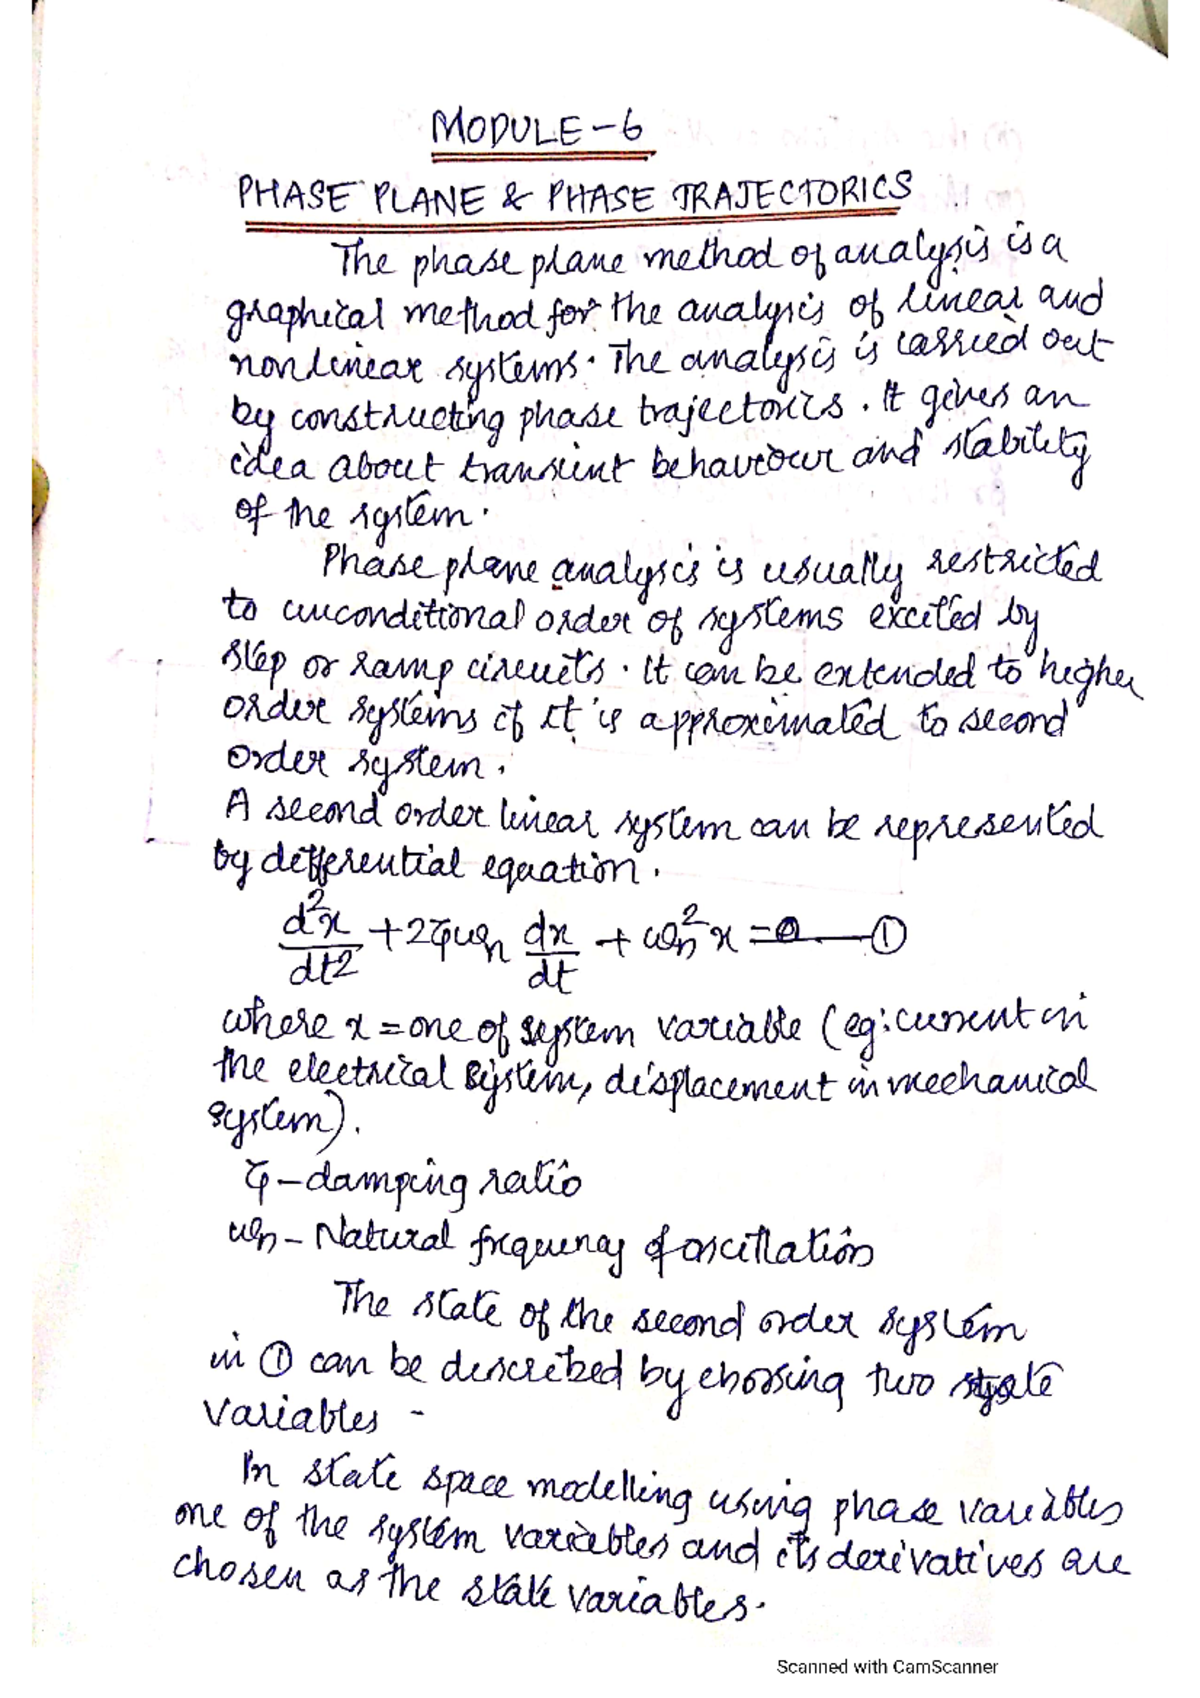 MODULE-6
PHASE PLANE & PHASE TRAJECTORICS
The phase plane method of analysis is a
graphical method for the analysis of linear and
nonlinear systems. The analysis is carried out
by constructing phase trajectories. It gives an
idea about transient behaviour and stability
of the system.
Phase plane analysis is usually restricted
to unconditional order of systems excited by
step or ramp circuits. It can be extended to higher
order systems if it is approximated to second
order system.
A second order linear system can be represented
by differential equation.
d²x/dt² + 2ζωn dx/dt + ωn² x = 0 — ①
where x = one of system variable (eg: current in
the electrical system, displacement in mechanical
system).
ζ - damping ratio
ωn - Natural frequency of oscillation
The state of the second order system
in ① can be described by choosing two state
variables -
In state space modelling using phase variables
one of the system variables and its derivatives are
chosen as the state variables.
Scanned with CamScanner